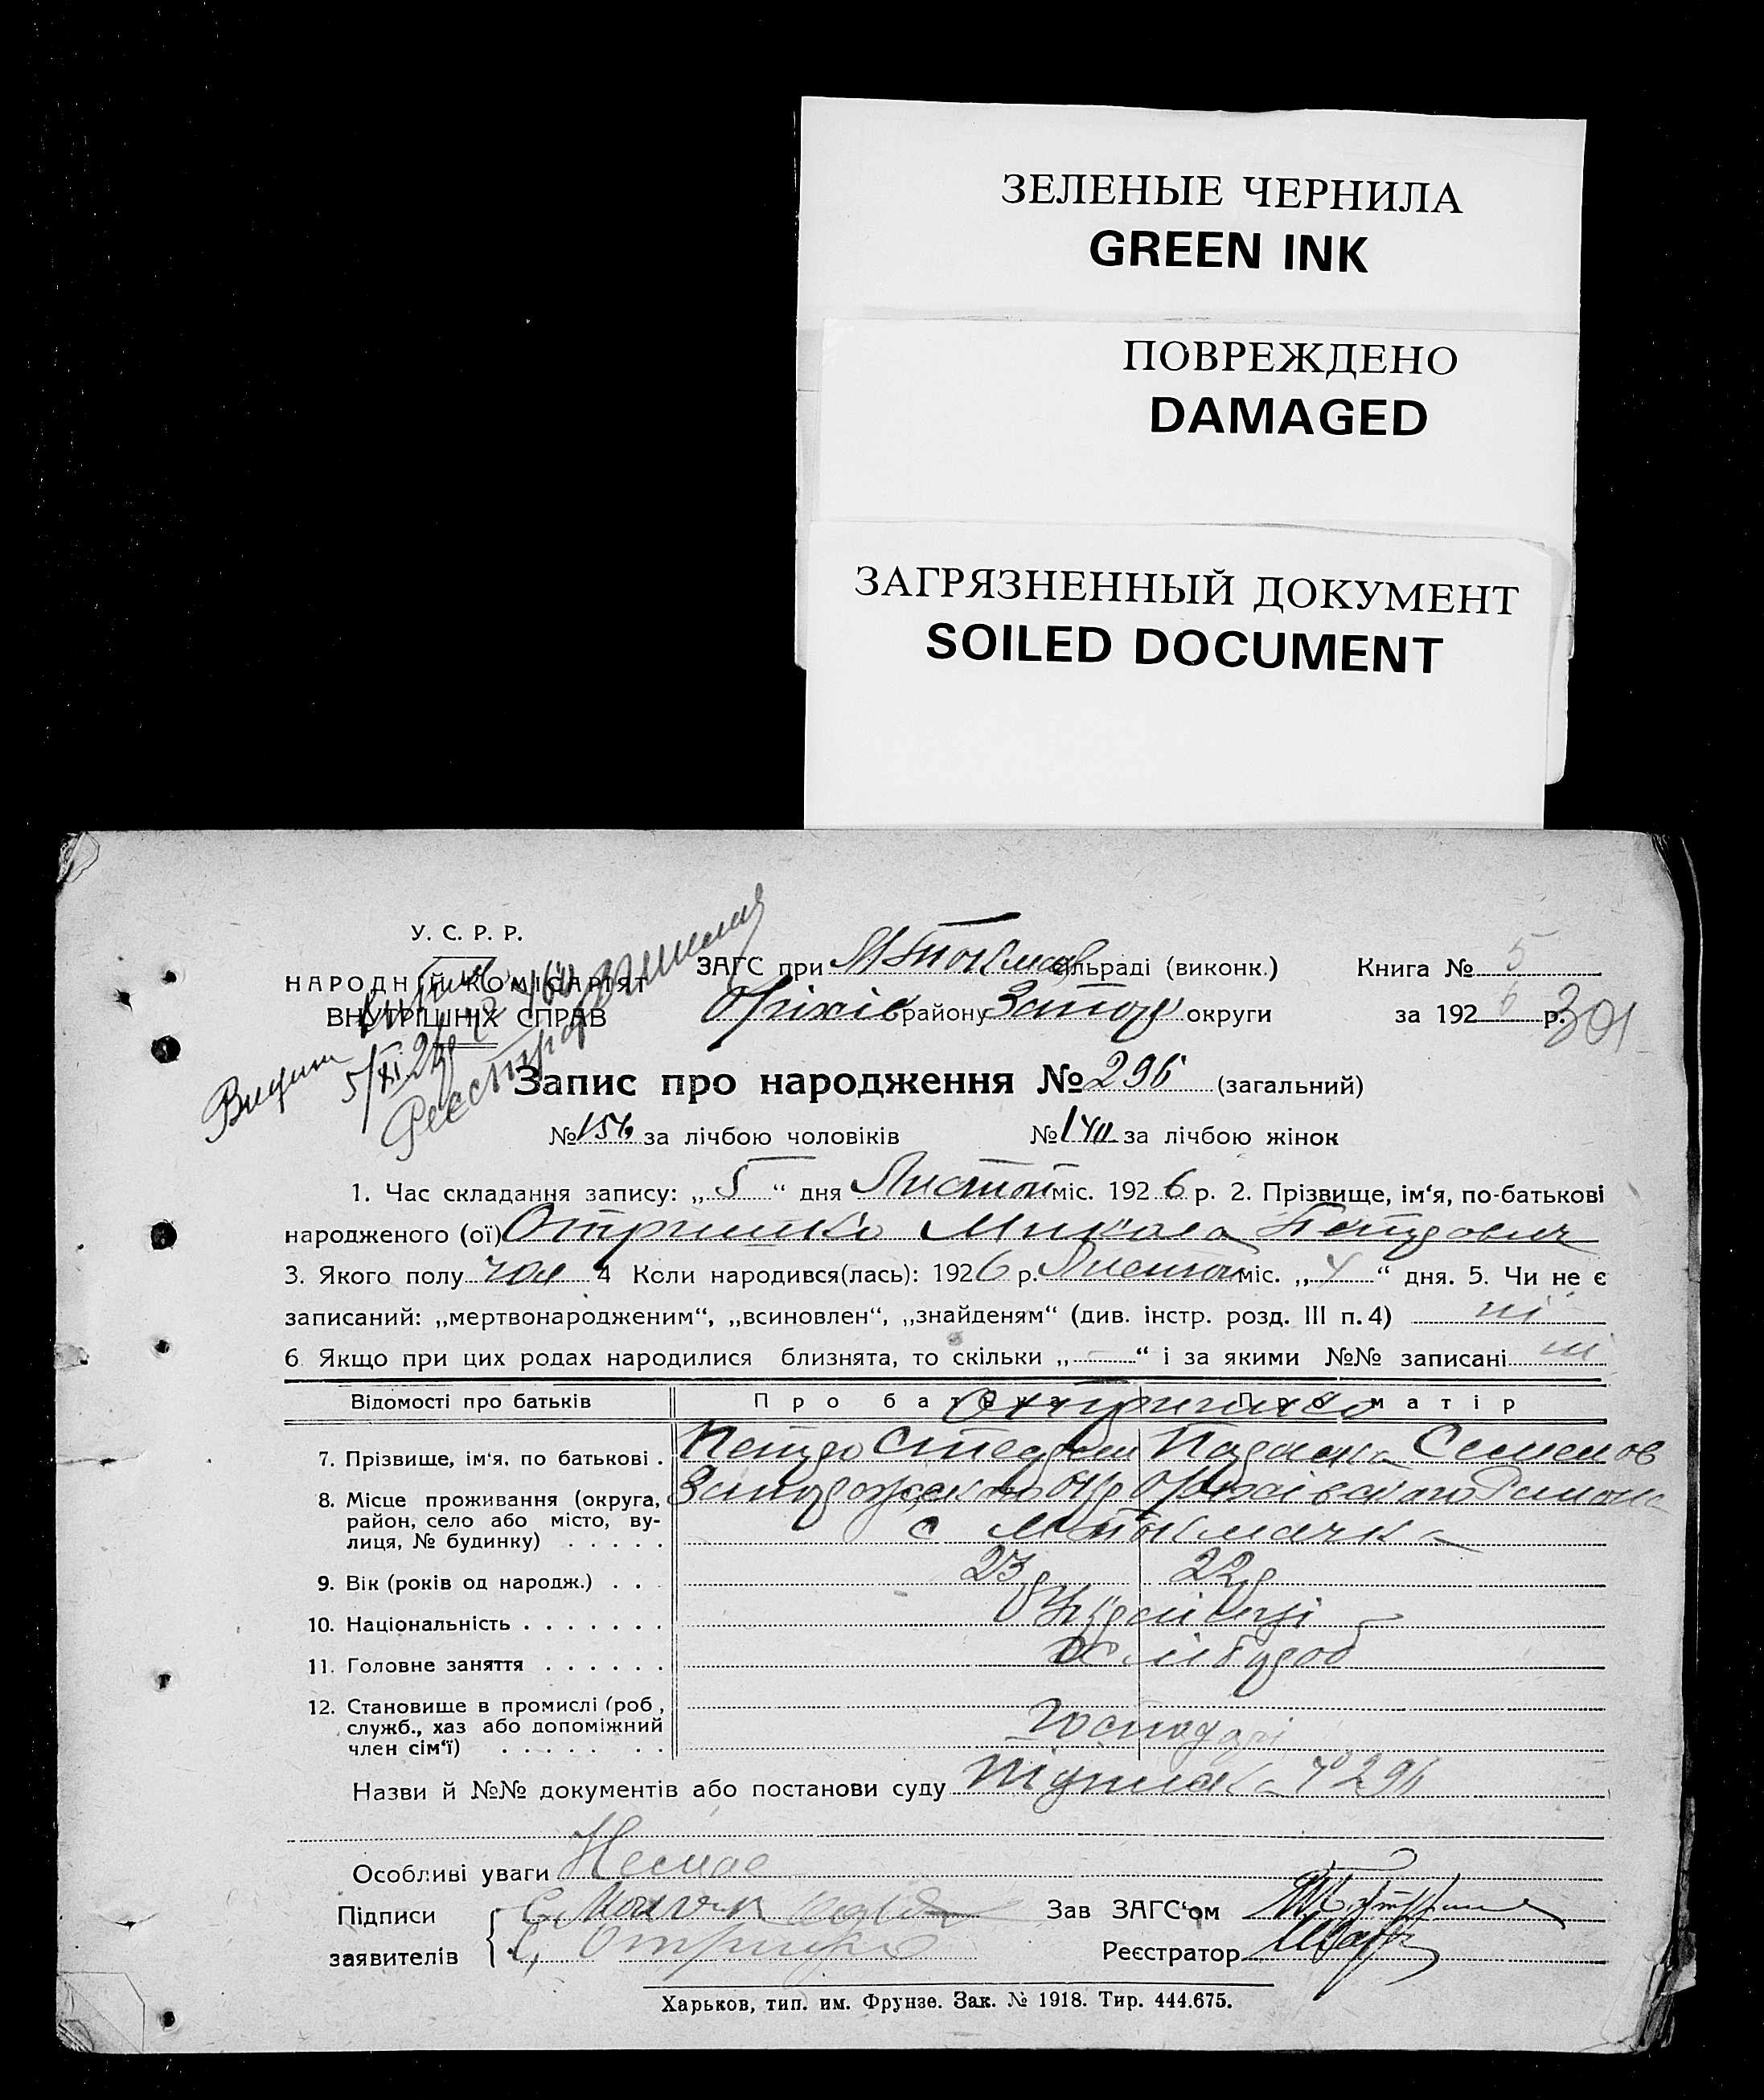 ЗЕЛЕНЫЕ ЧЕРНИЛА
GREEN INK
ПОВРЕЖДЕНО
DAMAGED
ЗАГРЯЗНЕННЫЙ ДОКУМЕНТ
SOILED DOCUMENT
У. С. Р. Р.
НАРОДНІЙ КОМІСАРІЯТ
ВНУТРІШНІХ СПРАВ
ЗАГС при М Токмач сільраді (виконк.)
Книга № 5
Оріхів району Запор округи
за 1926 р.
301
Видан
5/XI 26
Запис про народження № 296 (загальний)
№ 156 за лічбою чоловіків № 140 за лічбою жінок
1. Час складання запису: „5“ дня Листоп міс. 1926 р. 2. Прізвище, ім‘я, по-батькові
народженого (ої) Отришко Микола Петрович
3. Якого полу чол 4 Коли народився(лась): 1926 р. Листоп міс. „4“ дня. 5. Чи не є
записаний: „мертвонародженим“, „всиновлен“, „знайденям“ (див. інстр. розд. III п. 4) ні
6 Якщо при цих родах народилися близнята, то скільки „—“ і за якими №№ записані ні
Відомості про батьків Про батька Про матір
Отришко
7. Прізвище, ім‘я. по батькові . Петро Семенов
8. Місце проживання (округа, Запорожського окр Оріхівского Района
район, село або місто, ву- с М Токмачка
лиця, № будинку) . . . . .
9. Вік (років од народж.) . . . 23 р 22 р
10. Національність . . . . . . . Українці
11. Головне заняття . . . . . . Хлібороб
12. Становище в промислі (роб.,
служб., хаз або допоміжний Господарі
член сім‘ї) . . . . . . . .
Назви й №№ документів або постанови суду № 296
Особливі уваги Немає
Підписи
заявителів Отришко
Зав ЗАГС‘ом
Реєстратор
Харьков, тип. им. Фрунзе. Зак. № 1918. Тир. 444.675.